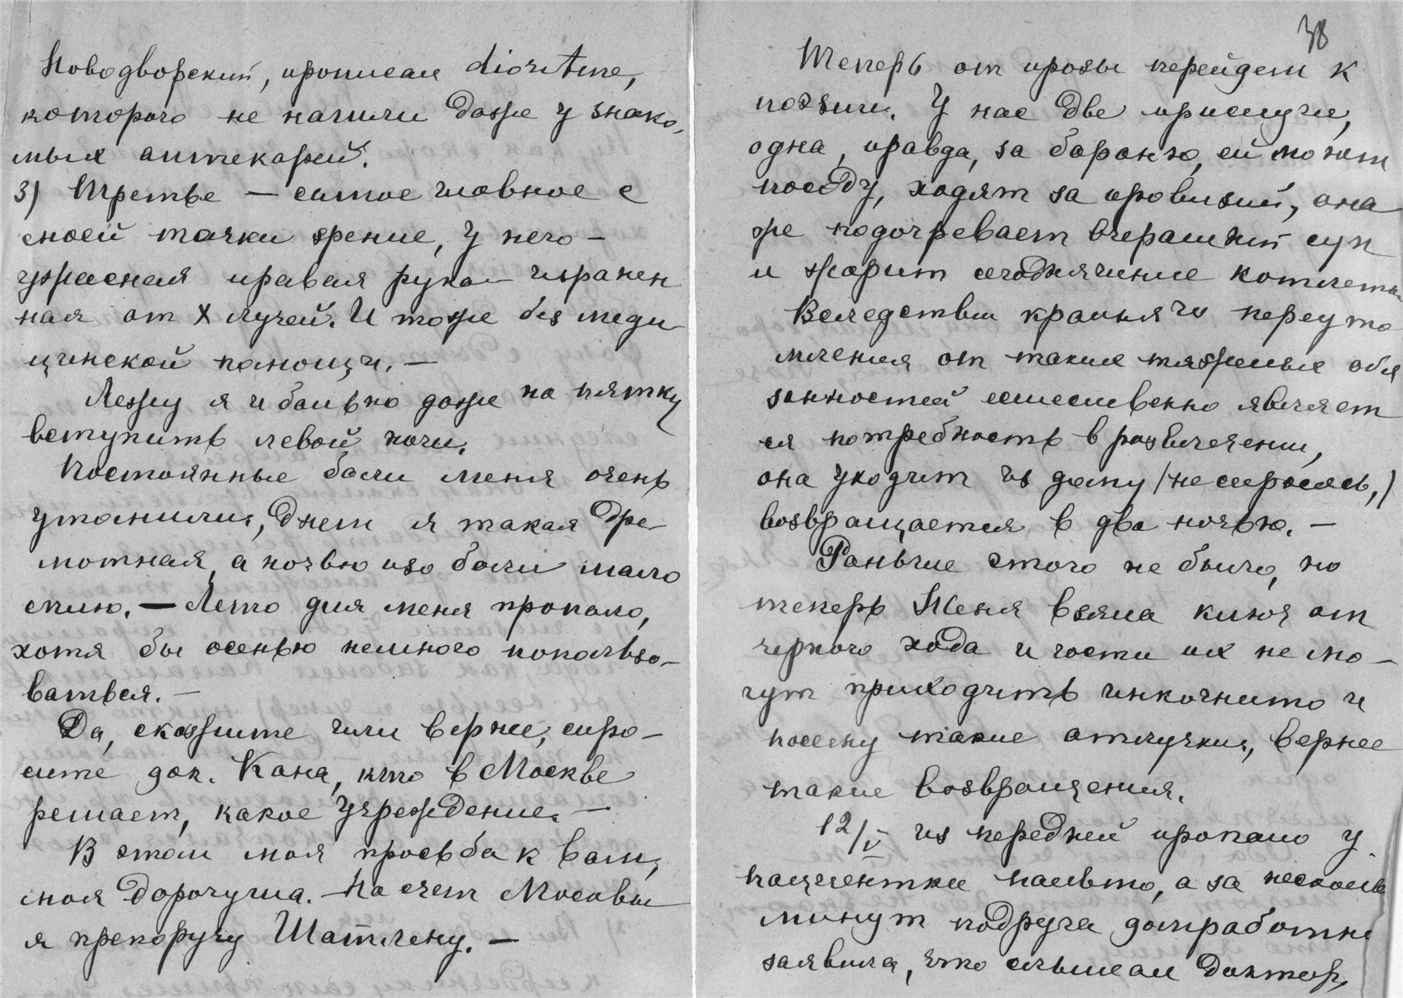 Новодворский, прописал
которого не нашли даже у знако-
мых аптекарей.
3) Третье — самое главное с
моей точки зрение, у него —
ужасная правая рука изранен
ная от X лучей. И тоже без меди
цинской помощи. —
Лежу я и больно даже на пятку
вступить левой ноги.
Постоянные боли меня очень
утомили, днем я такая дре
мотная, а ночью изо боли мало
сплю. — Лето для меня пропало,
хотя бы осенью немного попользо-
ваться. —
Да, скажите или вернее, спро-
сите док. Кана, кто в Москве
решает, какое учреждение. —
В этом моя просьба к Вам,
моя дорогуша. На счет Москвы
я препоручу Шатлену. —
38
Теперь от прозы перейдем к
поэзии. У нас две прислуги,
одна, правда, за барыню, ей моют
посуду, ходят за провизий, она
же подогревает вчерашний суп
и жарит сегоднячние котлеты
Вследствии крайняго переуто
мления от таких тяжелых обя
занностей естественно являет
ся потребность в развлечении,
она уходит из дому (не спросясь,)
возвращается в два ночью. —
Раньше этого не было, но
теперь Женя взяла ключ от
черного хода и гости их не мо-
гут приходить инкогнито и
посему такие отлучки, вернее
такие возвращения.
12/V из передней пропало у
пациентки пальто, а за несколько
минут подруга домработн
заявила, что слышал доктор,